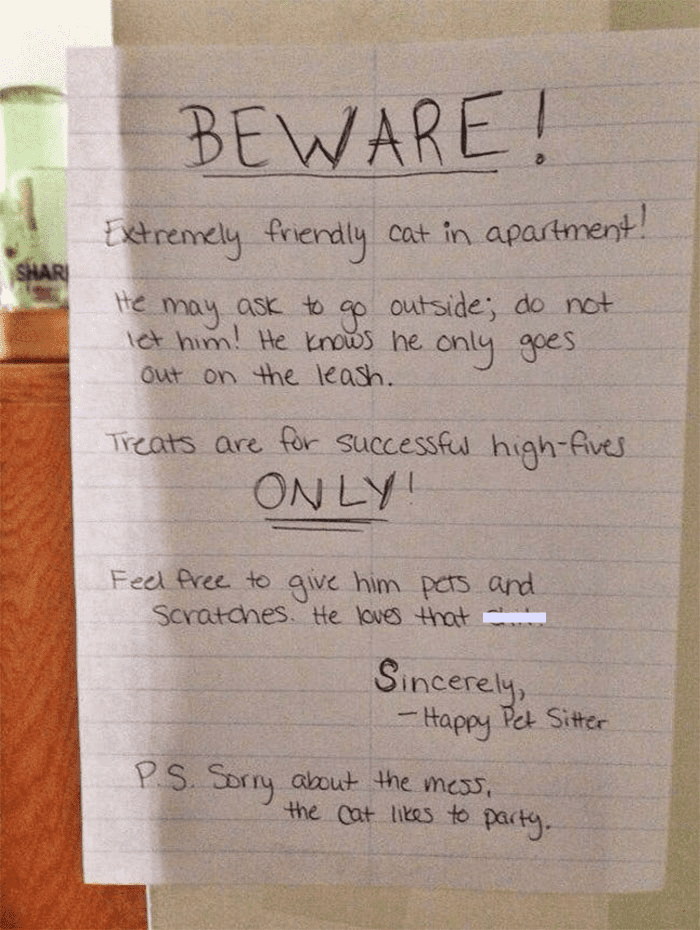 BEWARE!
Extremely friendly cat in apartment!
He may ask to go outside; do not
let him! He knows he only goes
out on the leash.
Treats are for successful high-fives
ONLY!
Feel free to give him pets and
scratches. He loves that
Sincerely,
- Happy Pet Sitter
P.S. Sorry about the mess,
the cat likes to party.
SHAR